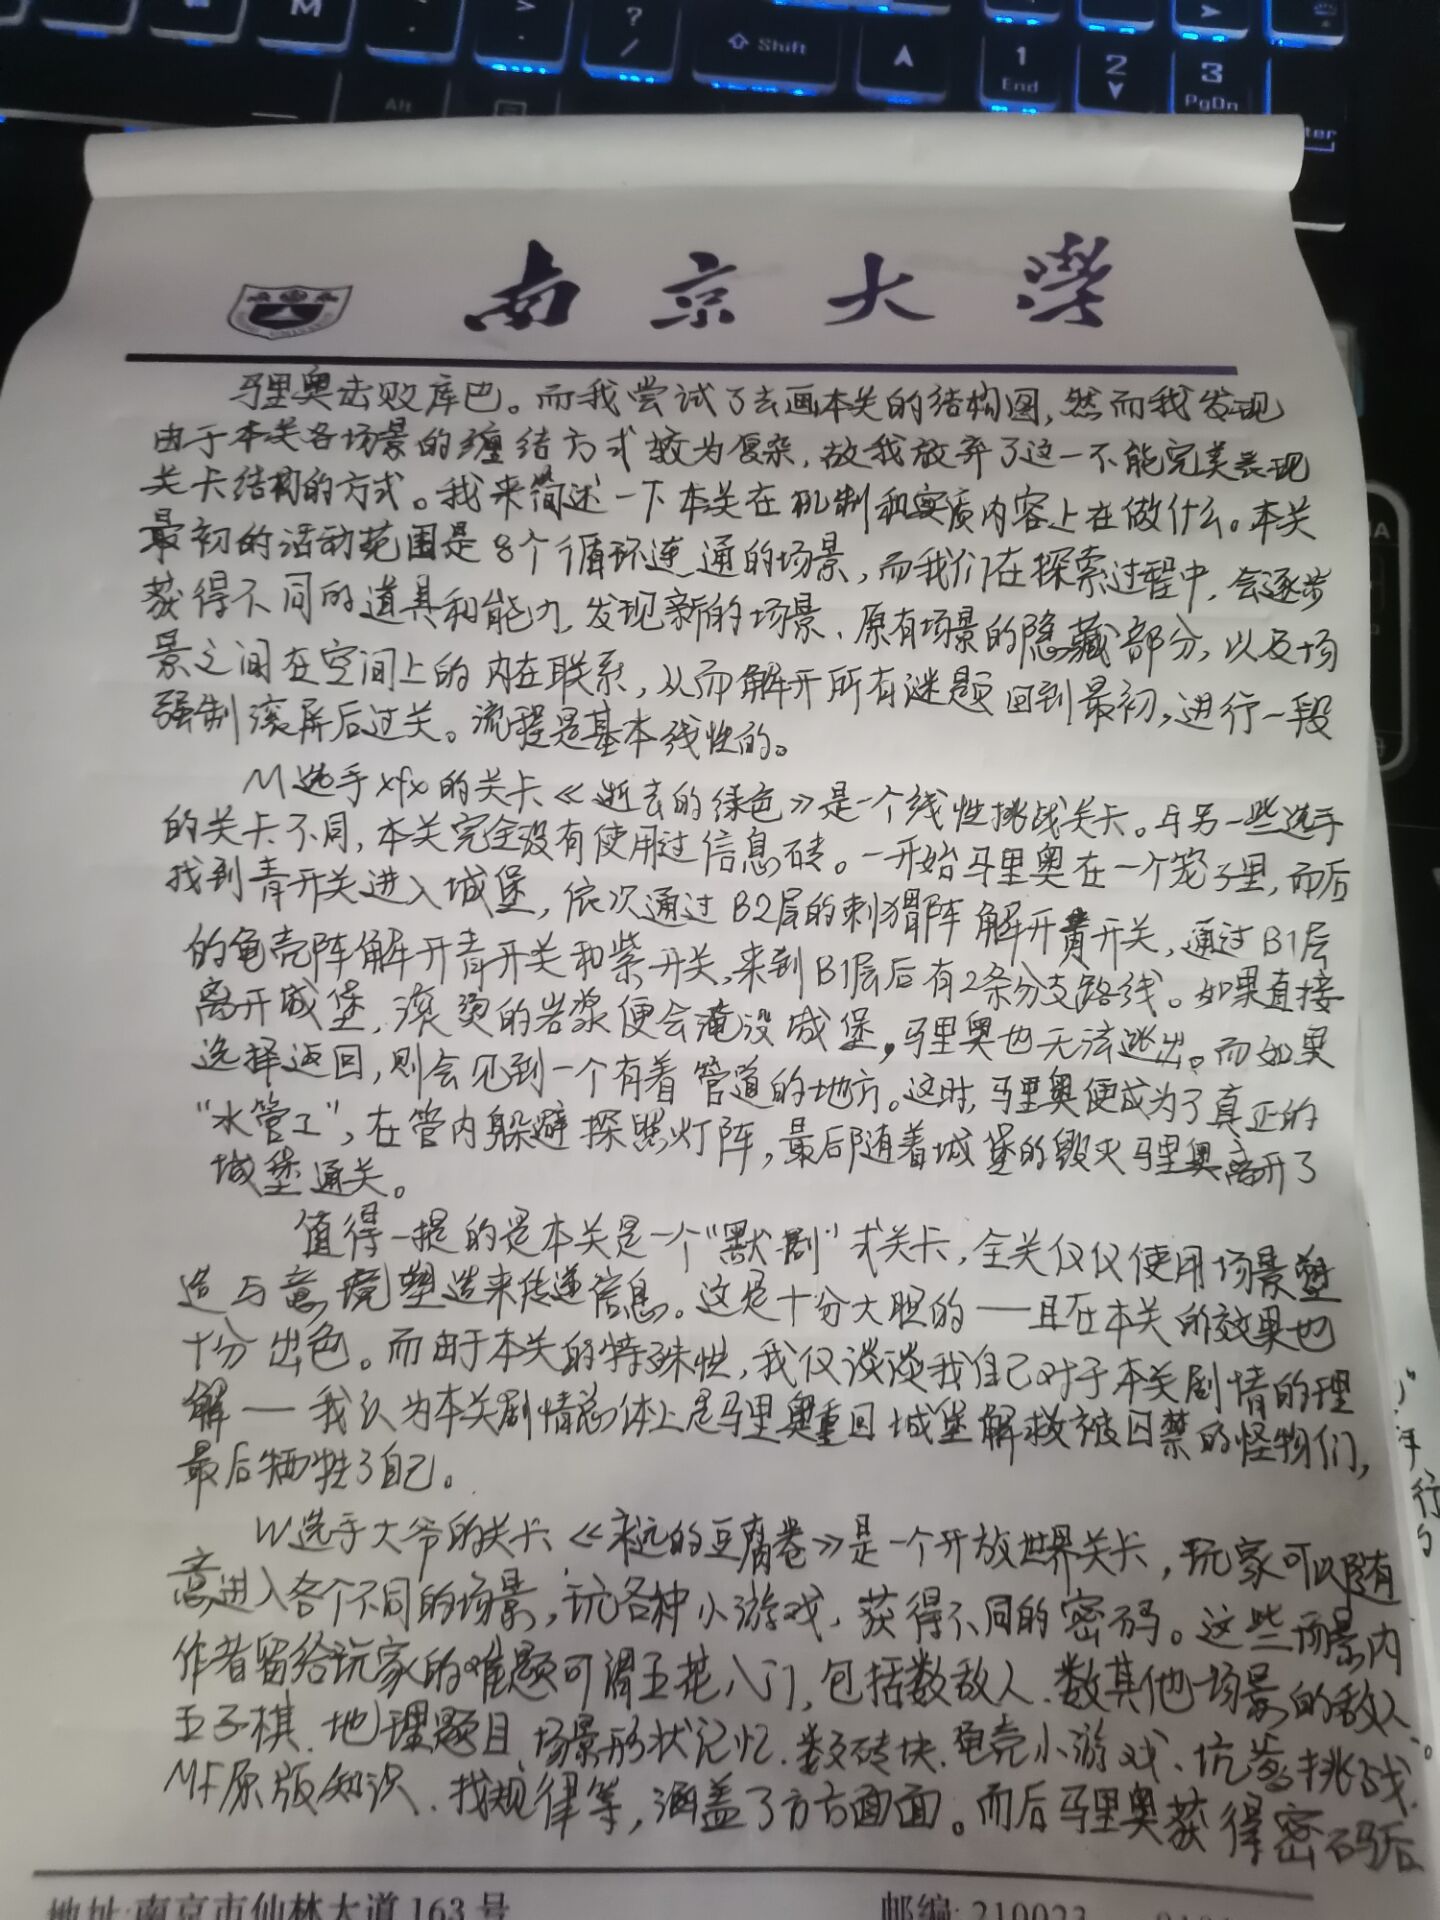 M
Alt
?
/
Shift
1
End
2
3
PgDn
南京大学
马里奥击败库巴。而我尝试了去画本关的结构图,然而我发现
由于本关各场景的缠结方式较为复杂,故我放弃了这一不能完美表现
关卡结构的方式。我来简述一下本关在机制和实质内容上在做什么。本关
最初的活动范围是8个循环连通的场景,而我们在探索过程中,会逐步
获得不同的道具和能力,发现新的场景、原有场景的隐藏部分,以及场
景之间在空间上的内在联系,从而解开所有谜题回到最初,进行一段
强制滚屏后过关。流程是基本线性的。
M选手xfx的关卡《逝去的绿色》是一个线性挑战关卡。与另一些选手
的关卡不同,本关完全没有使用过信息砖。一开始马里奥在一个笼子里,而后
找到青开关进入城堡,依次通过B2层的刺猬阵解开黄开关,通过B1层
的龟壳阵解开青开关和紫开关,来到B1层后有2条分支路线。如果直接
离开城堡,滚烫的岩浆便会淹没城堡,马里奥也无法逃出。而如果
选择返回,则会见到一个有着管道的地方。这时,马里奥便成为了真正的
“水管工”,在管内躲避探照灯阵,最后随着城堡的毁灭马里奥离开了
城堡通关。
值得一提的是本关是一个“默剧”式关卡,全关仅仅使用场景塑
造与意境塑造来传递信息。这是十分大胆的——且在本关的效果也
十分出色。而由于本关的特殊性,我仅谈谈我自己对于本关剧情的理
解——我认为本关剧情总体上是马里奥重回城堡解救被囚禁的怪物们,
最后牺牲了自己。
W选手大爷的关卡《永远的豆腐卷》是一个开放世界关卡,玩家可以随
意进入各个不同的场景,玩各种小游戏,获得不同的密码。这些场景内
作者留给玩家的难题可谓五花八门,包括数敌人、数其他场景的敌人、
五子棋、地理题目、场景形状记忆、数砖块、龟壳小游戏、坑爹挑战、
MF原版知识、找规律等,涵盖了方方面面。而后马里奥获得密码后
地址:南京市仙林大道163号
邮编:210023